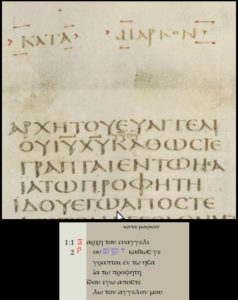 ΚΑΤΑ ΜΑΡΚΟΝ
ΑΡΧΗΤΟΥΕΥΑΓΓΕΛΙ
ΟΥΙΥΧΥΚΑΘΩϹΓΕ
ΓΡΑΠΤΑΙΕΝΤΩΗϹΑ
ΙΑΤΩΠΡΟΦΗΤΗ
ΙΔΟΥΕΓΩΑΠΟϹΤΕ
κατα μαρκον
1:1 α αρχη του ευαγγελι
2 β ου ιυ χυ καθωϲ γε
γραπται εν τω ηϲα
ια τω προφητη
ϊδου εγω αποϲτε
λω τον αγγελον μου